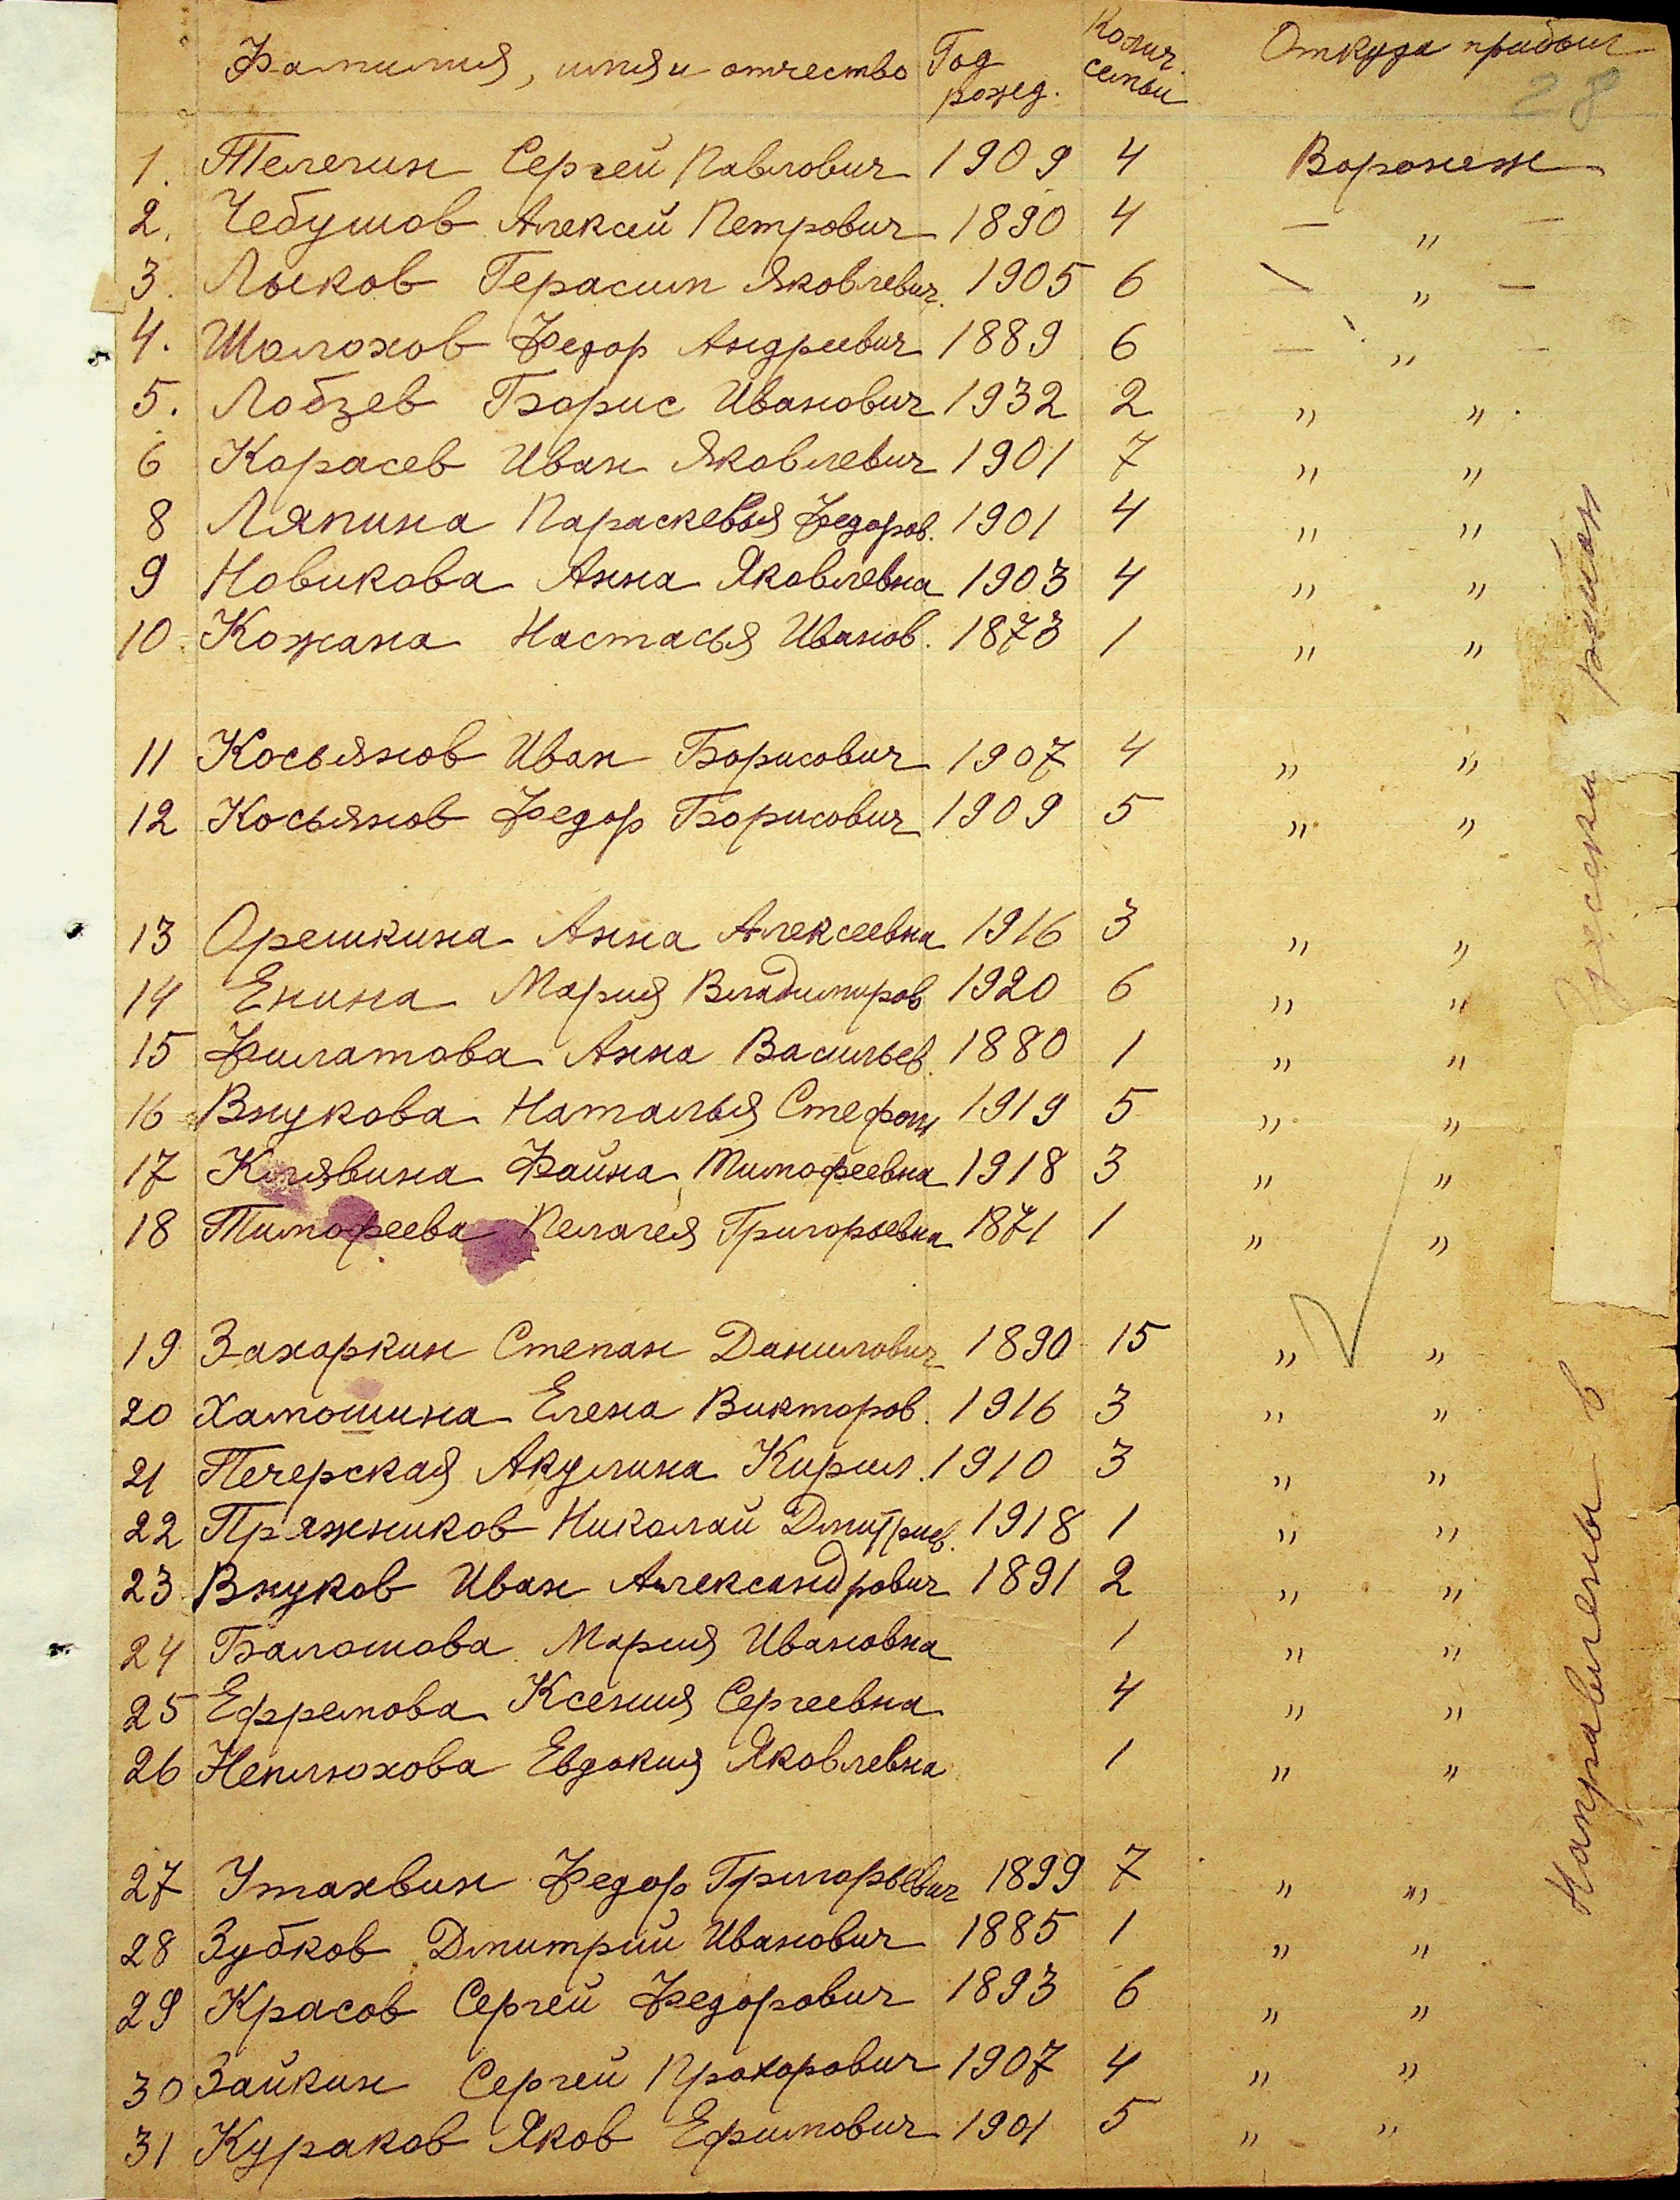 Фамилия, имя и отчество Год рожд. Колич. семьи Откуда прибыл
28
1. Телегин Сергей Павлович 1909 4 Воронеж
2. Чебушов Алексей Петрович 1890 4 — " —
3. Лыков Герасим Яковлевич 1905 6 — " —
4. Шолохов Федор Андреевич 1889 6 — " —
5. Лобзев Борис Иванович 1932 2 " "
6 Карасев Иван Яковлевич 1901 7 " "
8 Ляпина Параскевья Федоров. 1901 4 " "
9 Новикова Анна Яковлевна 1903 4 " "
10 Кожана Настасья Иванов. 1873 1 " "
11 Косьянов Иван Борисович 1907 4 " "
12 Косьянов Федор Борисович 1909 5 " "
13 Орешкина Анна Алексеевна 1916 3 " "
14 Енина Мария Владимиров 1920 6 " "
15 Филатова Анна Васильев. 1880 1 " "
16 Внукова Наталья Стефан 1919 5 " "
17 Клявина Фаина Тимофеевна 1918 3 " "
18 Тимофеева Пелагея Григорьевна 1871 1 " "
19 Захаркин Степан Данилович 1890 15 " "
20 Хатошина Елена Викторов. 1916 3 " "
21 Печерская Акулина Кирил. 1910 3 " "
22 Пряжников Николай Дмитриев. 1918 1 " "
23 Внуков Иван Александрович 1891 2 " "
24 Балашова Мария Ивановна 1 " "
25 Ефремова Ксения Сергеевна 4 " "
26 Неплюхова Евдокия Яковлевна 1 " "
27 Утахвин Федор Григорьевич 1899 7 " "
28 Зубков Дмитрий Иванович 1885 1 " "
29 Красов Сергей Федорович 1893 6 " "
30 Зайкин Сергей Прохорович 1907 4 " "
31 Кураков Яков Ефимович 1901 5 " "
Направлены в район